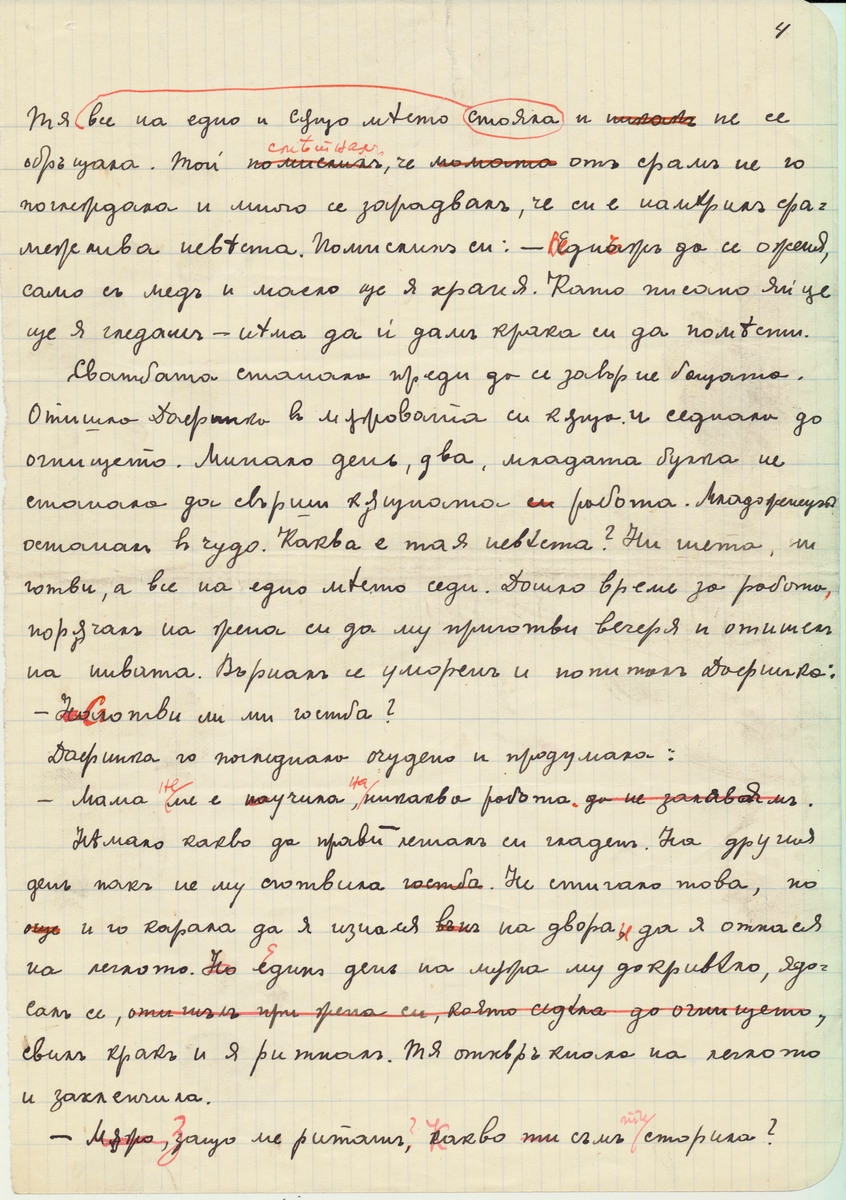 4
Тя все на едно и сѫщо мѣсто стояла и никакъ не се
смѣтналъ
обръщала. Той помислилъ, че момата отъ срамъ не го
погледнала и много се зарадвалъ, че си е намѣрилъ сра=
межлива невѣста. Помислилъ си: — Веднъжъ да се оженя,
само съ медъ и масло ще я храня. Като писано яйце
ще я гледамъ — нѣма да ѝ дамъ крака си да помѣсти.
Сватбата станала преди да се завърне бащата.
Отишла Дафинка въ мѫжовата си кѫща и седнала до
огнището. Минало день, два, младата булка не
станала да свърши кѫщната си работа. Младоженецътъ
останалъ въ чудо. Каква е тая невѣста? Ни мета, ни
готви, а все на едно мѣсто седи. Дошло време за работа,
порѫчалъ на жена си да му приготви вечеря и отишелъ
на нивата. Върналъ се уморенъ и попиталъ Дафинка:
— Сготви ли ми гостба?
Дафинка го погледнала очудено и продумала:
— Мама не ме е научила на никаква работа. да не захабявамъ.
Нѣмало какво да прави легналъ си гладенъ. На другия
день пакъ не му сготвила гостба. Не стигало това, но
още и го карала да я изнася вънъ на двора, и да я отнася
на леглото. На Единъ день на мѫжа му докривѣло, ядо=
салъ се, отишълъ при жена си, която седѣла до огнището,
свилъ кракъ и я ритналъ. Тя отхвръкнала на леглото
и захленчила.
— Мѫжо, Защо ме риташъ, ? Какво ти съмъ ти сторила?